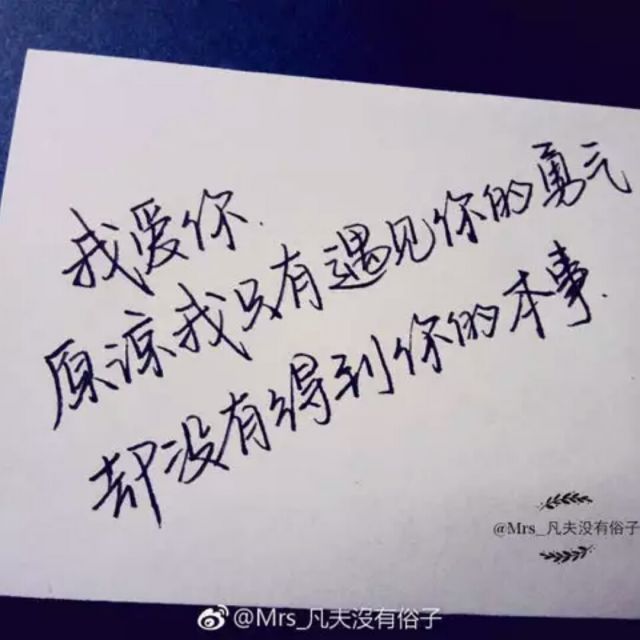 我爱你.
原谅我只有遇见你的勇气
却没有得到你的本事.
@Mrs_凡夫没有俗子
@Mrs_凡夫沒有俗子